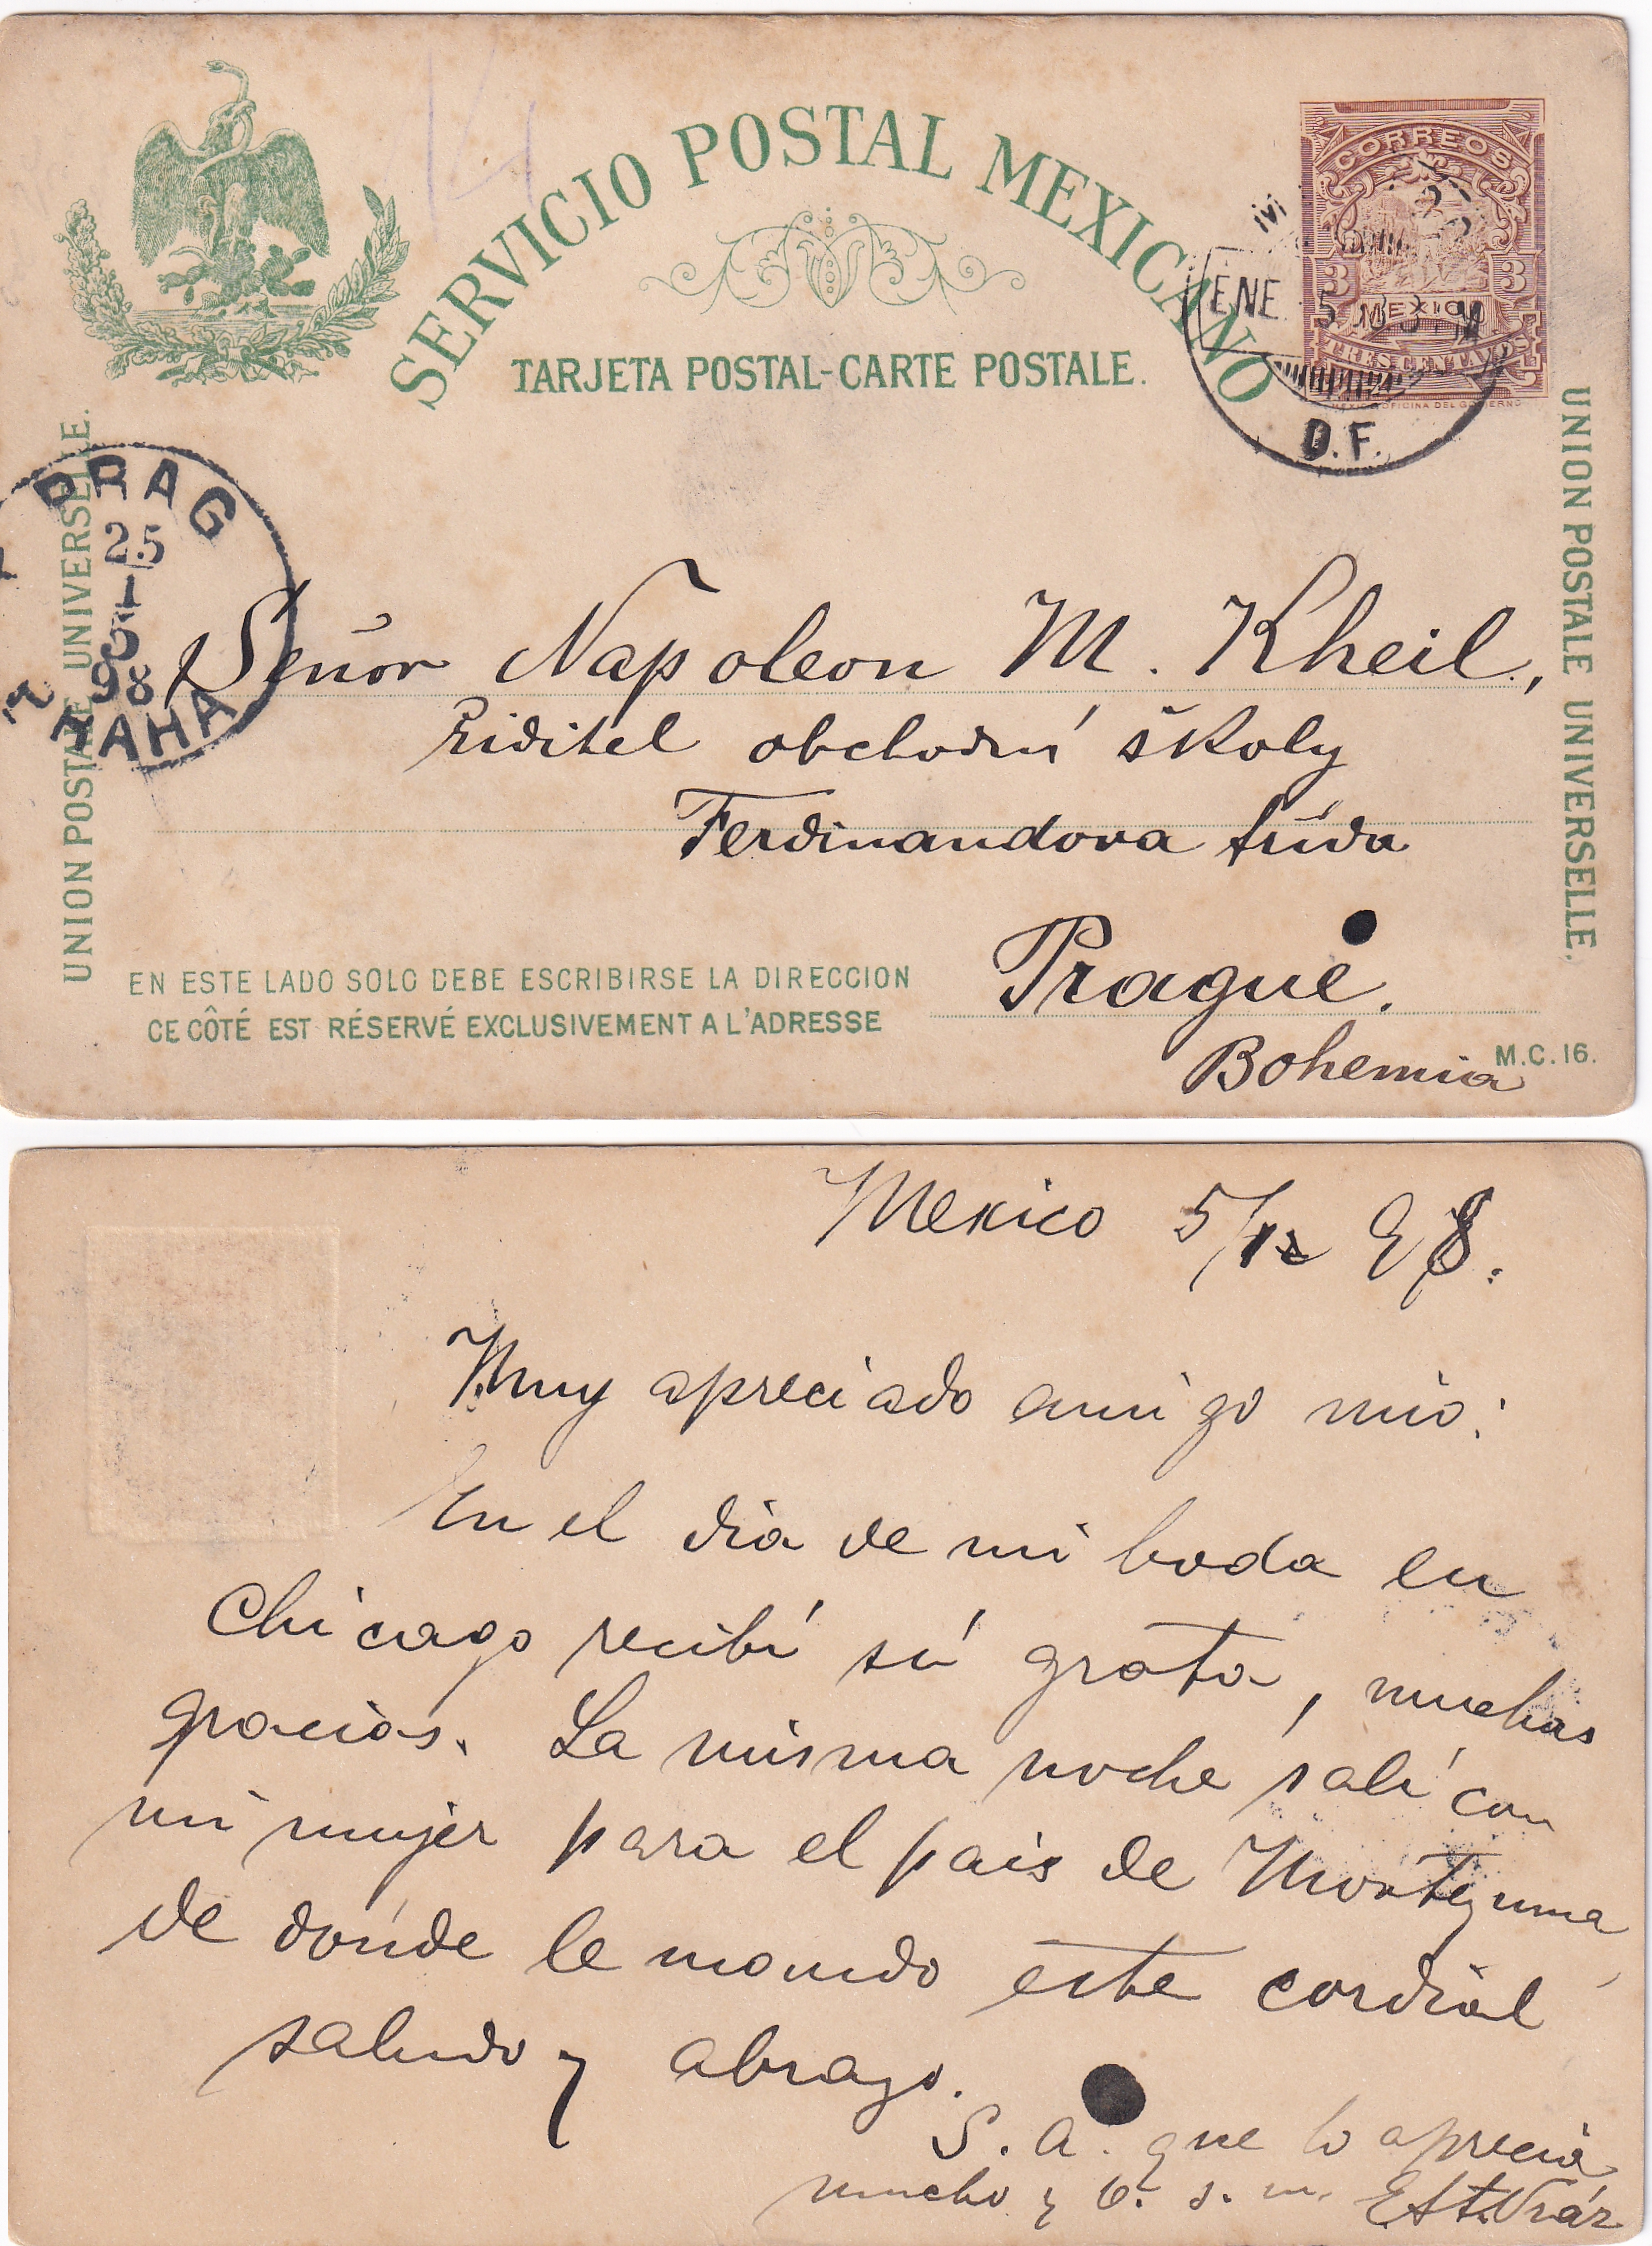 SERVICIO POSTAL MEXICANO
TARJETA POSTAL-CARTE POSTALE.
CORREOS
3 3
MEXICO
TRES CENTAVOS
MEXICO OFICINA DEL GOBIERNO
ENE 5
D.F.
UNION POSTALE UNIVERSELLE.
UNION POSTALE UNIVERSELLE.
PRAG
25
1
98
PRAHA
Señor Napoleon M. Kheil,
Riditel obchodní školy
Ferdinandova třída
Prague.
Bohemia
EN ESTE LADO SOLO DEBE ESCRIBIRSE LA DIRECCION
CE CÔTÉ EST RÉSERVÉ EXCLUSIVEMENT A L'ADRESSE
M.C.16.
Mexico 5/1 98.
Muy apreciado amigo mio:
En el dia de mi boda en
Chicago recibí sú grata, muchas
gracias. La misma noche salí con
mi mujer para el pais de Montezuma
de dónde le mando este cordial
saludo y abrazo.
S. A. que lo aprecia
mucho y b. s. m. E. St. Vráz